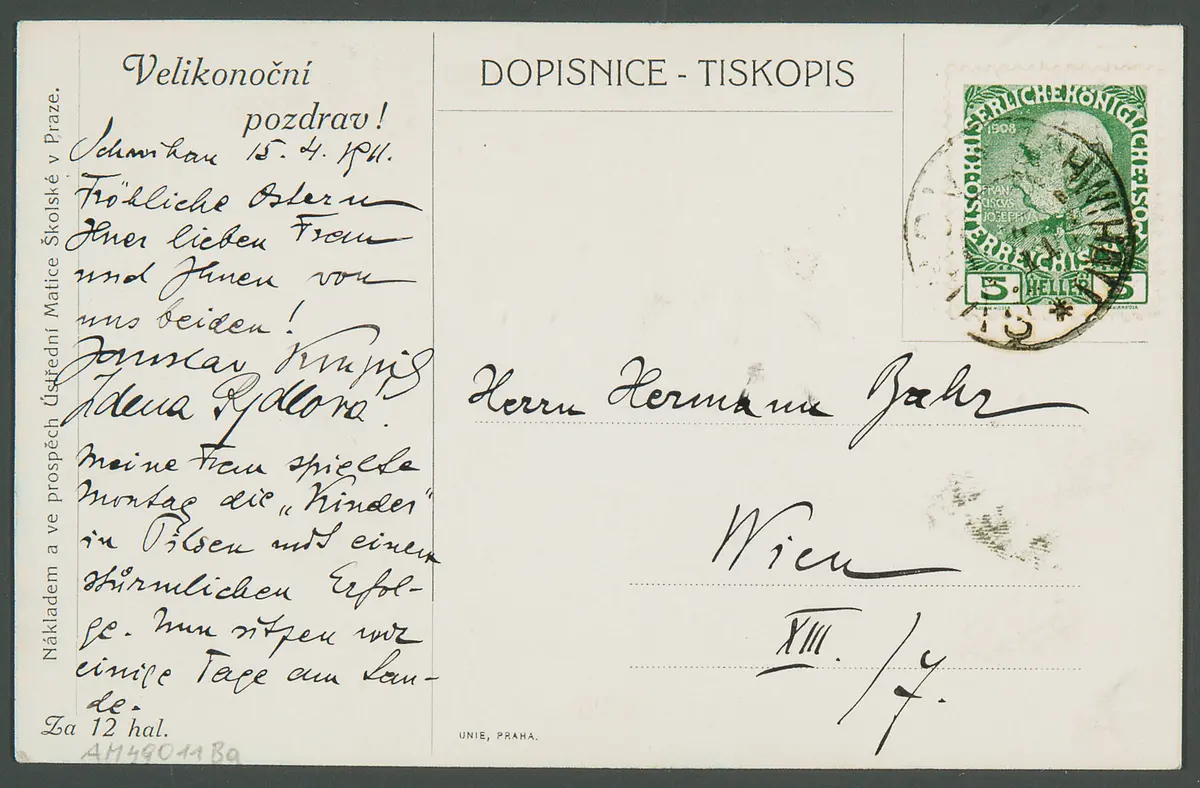 Velikonoční
pozdrav!
Schwihau 15. 4. 1911.
Fröhliche Ostern
Ihrer lieben Frau
und Ihnen von
uns beiden!
Jaroslav Kvapil
Zdena Rydlova.
Meine Frau spielte
Montag die „Kinder"
in Pilsen mit einem
stürmlichen Erfol-
ge. Nun sitzen wir
einige Tage am Lan-
de.
Za 12 hal.
AM49011Ba
Nákladem a ve prospěch Ústřední Matice Školské v Praze.
DOPISNICE - TISKOPIS
KAISERLICHE KÖNIGLICHE
ÖSTERREICHISCHE
1908
FRAN
CISCVS
JOSEPHVS
5 HELLER 5
SCHWIHAU
Herrn Hermann Bahr
Wien
XIII. /7.
UNIE, PRAHA.